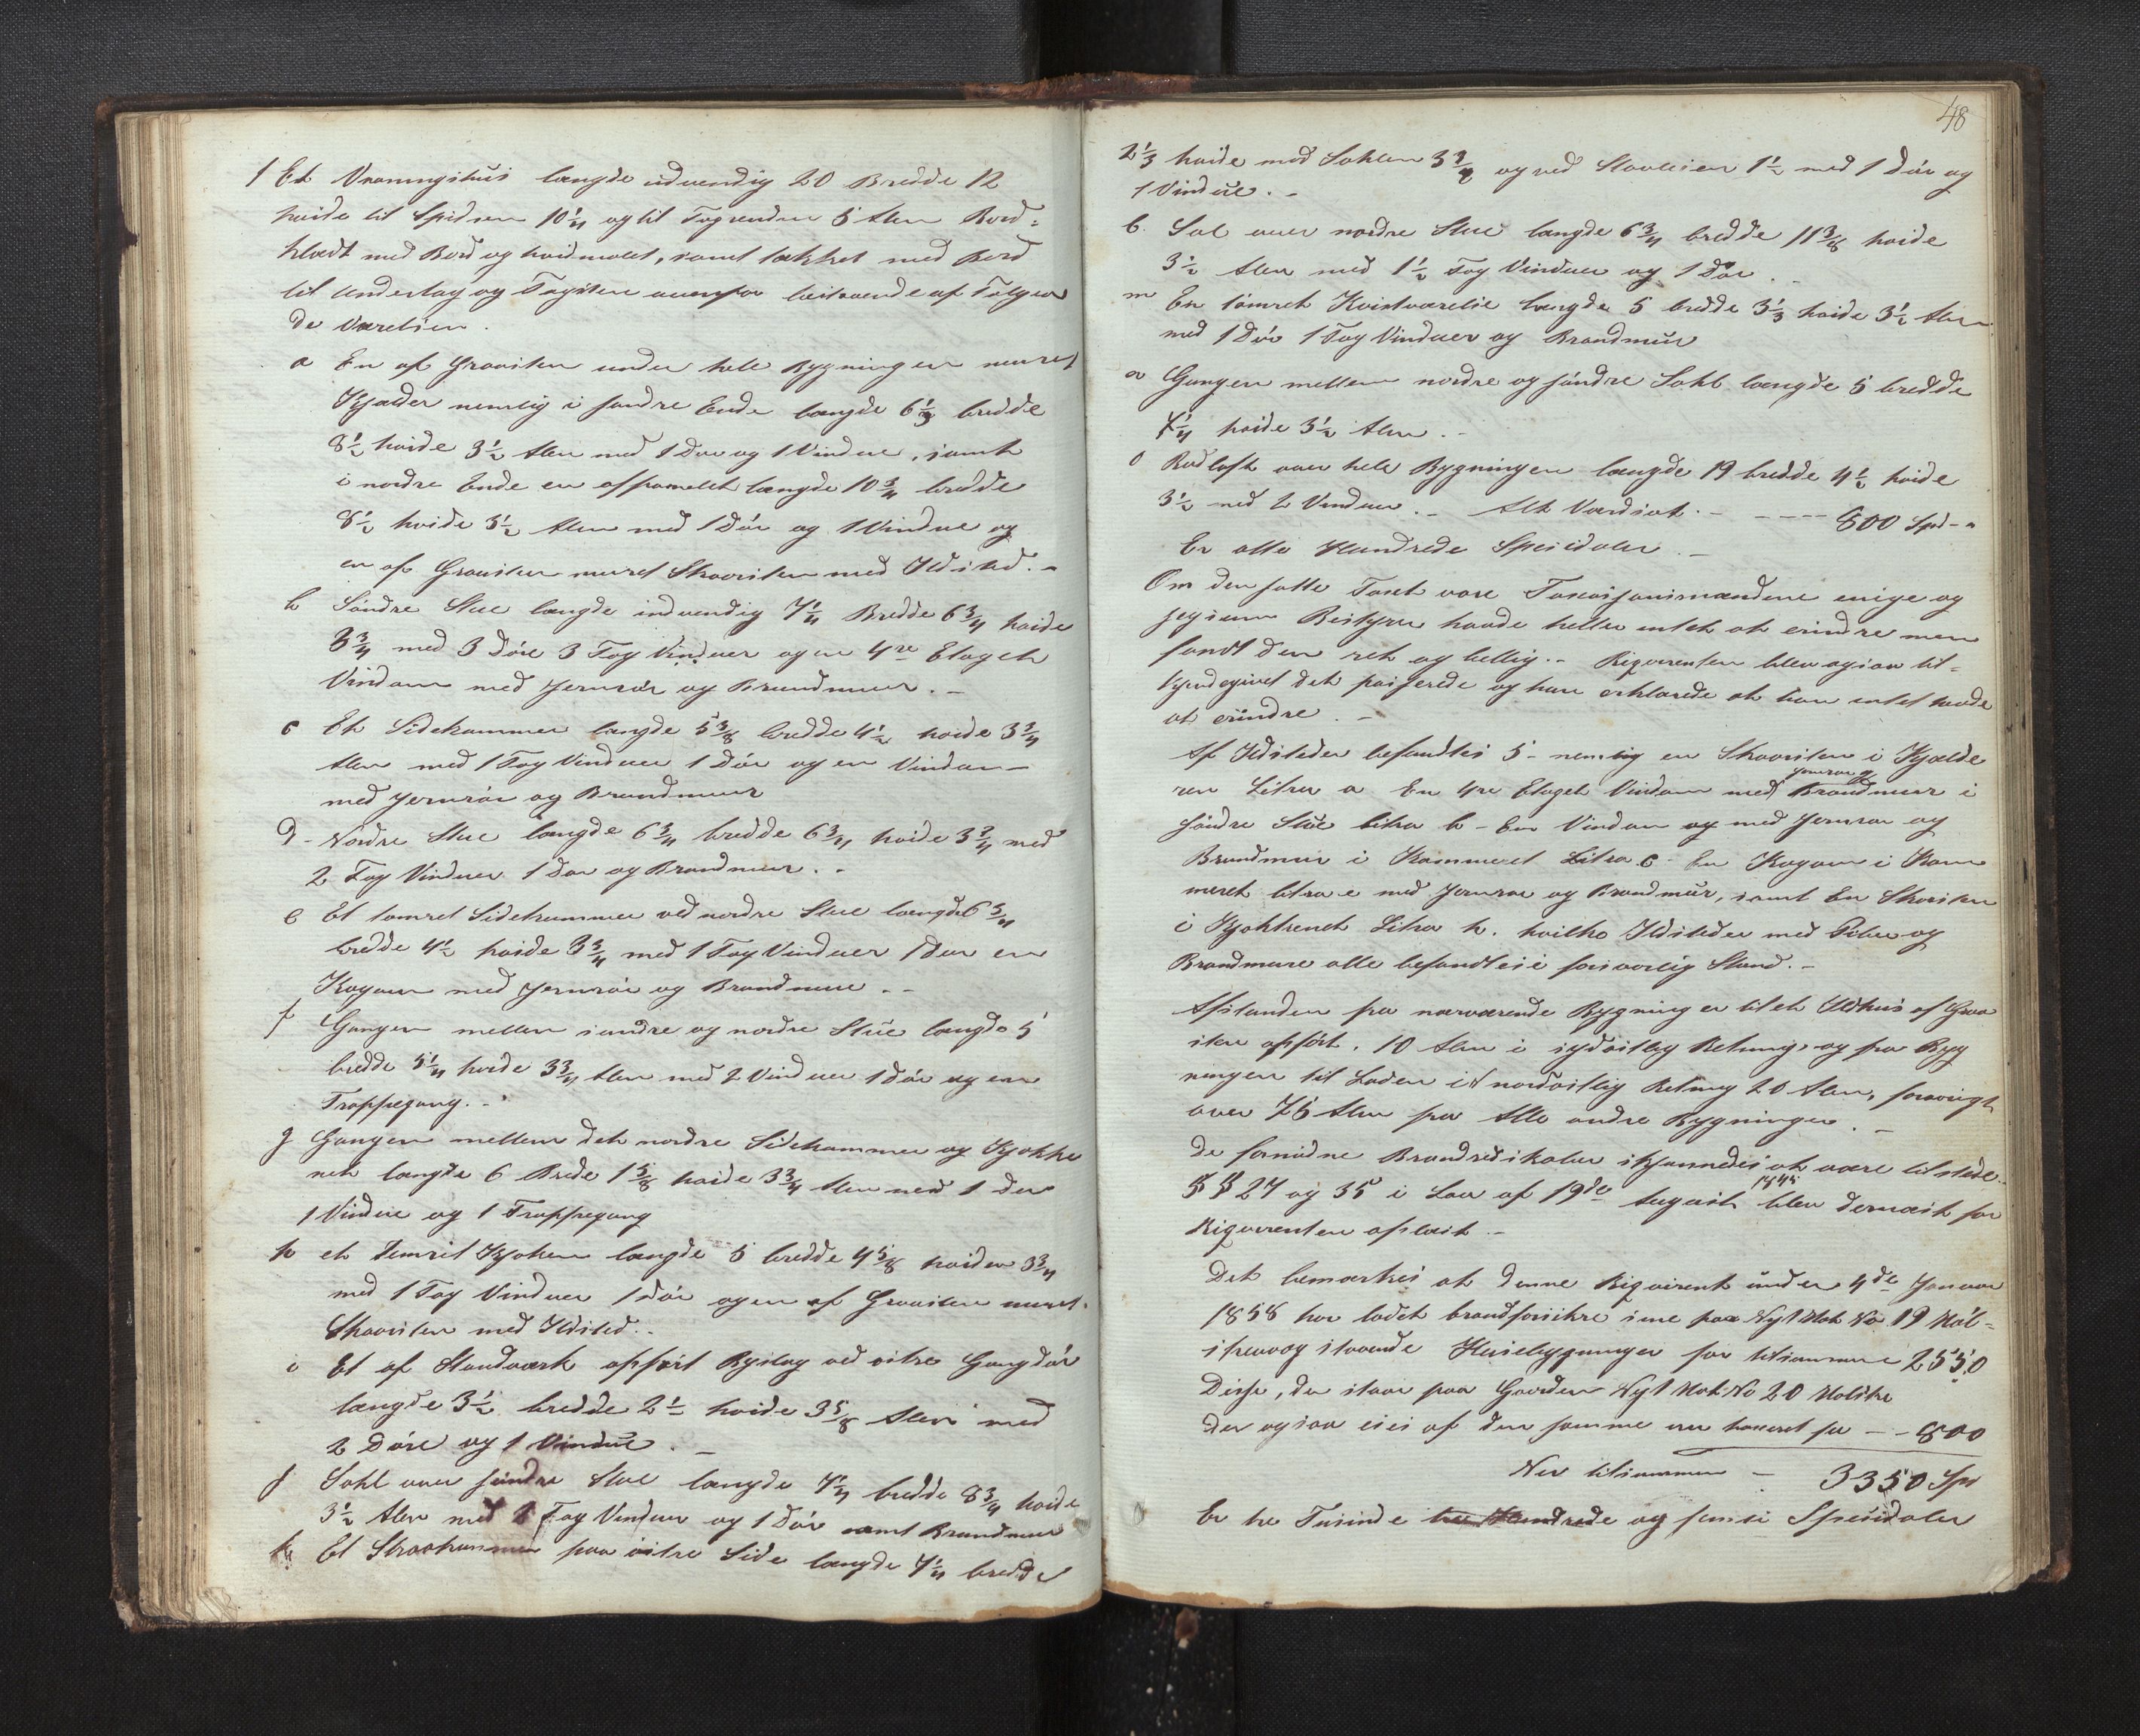 1 Et Vaaningshus længde udvendig 20 Bredde 12
høide til Spidsen 10 1/4 og til Tagrenden 5 Alen Bord=
klædt med Bord og hvidmalet, samt tækket med Bord
til Undertag og Tagsten ovenpaa bestaaende af Følgen
de Værelser.
a En af Graasten under hele Bygningen muret
Kjælder nemlig i søndre Ende længde 6 1/3 bredde
8 1/2 høide 3 1/2 Alen med 1 Dør og 1 Vindue, samt
i nordre Ende en afpanelet længde 10 3/4 bredde
8 1/2 høide 3 1/2 Alen med 1 Dør og 1 Vindue og
en af Graasten muret Skorsten med Ildsted. -
b Søndre Stue længde indvendig 7 1/4 Bredde 6 3/4 høide
3 3/4 med 3 Døre 3 Fag Vinduer og en 4re Etages
Vindovn med Jernrør og Brandmuur. -
c Et Sidekammer længde 5 3/8 bredde 4 1/2 høide 3 3/4
Alen med 1 Fag Vinduer 1 Dør og en Vindovn
med Jernrør og Brandmuur
d - Nordre Stue længde 6 3/4 bredde 6 3/4 høide 3 3/4 med
2 Fag Vinduer 1 Dør og Brandmuur. -
e Et tømret Sidekammer ved nordre Stue længde 6 3/4
bredde 4 1/2 høide 3 3/4 med 1 Fag Vinduer 1 Dør en
Kogovn med Jernrør og Brandmuur. -
f Gangen mellem søndre og nordre Stue længde 5
bredde 5 1/4 høide 3 3/4 Alen med 2 Vinduer 1 Dør og en
Trappegang. -
g Gangen mellem det nordre Sidekammer og Kjøkke
net længde 6 Brede 1 5/8 høide 3 3/4 Alen med 1 Dør
1 Vindue og 1 Trappegang
h et Tømret Kjøken længde 5 bredde 4 5/8 høiden 3 3/4
med 1 Fag Vinduer 1 Dør og en af Graasten muret
Skorsten med Ildsted. -
i Et af Standværk opført Bislag ved østre Gangdør
længde 3 1/2 bredde 2 1/2 høide 3 5/8 Alen med
2 Døre og 1 Vindue. -
j Sahl over søndre Stue længde 7 1/4 bredde 8 3/4 høide
3 1/2 Alen med 2 Fag Vinduer og 1 Dør samt Brandmuur
k Et Skraakammer paa østre Side længde 7 1/4 bredde
48
2 1/3 høide mod Sahlen 3 3/4 og ved 1 1/2 med 1 Dør og
1 Vindue. -
l. Sal over nordre Stue længde 6 3/4 bredde 11 3/8 høide
3 1/2 Alen med 1 1/2 Fag Vinduer og 1 Dør.
m En tømret Kvistværelse længde 5 bredde 3 1/3 høide 3 1/2 Alen
med 1 Dør 1 Fag Vinduer og Brandmuur
n Gangen mellem nordre og søndre Sahl længde 5 bredde
7 1/4 høide 3 1/2 Alen. -
o Rodloft over hele Bygningen længde 19 bredde 4 1/2 høide
3 1/2 med 2 Vinduer. - Alt Værdsat - - - - - 800 Spd -
Er otte Hundrede Speciedaler. -
Om den satte Taxt vare Taxasjonsmændene enige og
jeg som Bestyrer havde heller intet at erindre men
fandt den ret og billig. - Riqvirenten blev ogsaa til=
kjendegivet det passerede og han erklærede at han intet havde
at erindre. -
Af Ildsteder befandtes 5 - nemlig en Skorsten i Kjælde
ren Litra a En 4re Etages Vindovn med Jernrør og Brandmuur i
søndre Stue litra b - En Vindovn og med Jernrør og
Brandmuur i Kammeret Litra c - En Kogovn i Kam
meret litra e med Jernrør og Brandmuur, samt En Skorsten
i Kjøkkenet Litra h. hvilke Ildsteder med Piber og
Brandmure alle befandtes i forsvarlig Stand. -
Afstanden fra nærværende Bygning er til et Ildhus af Graa
sten opført, 10 Alen i sydøstlig Retning og fra Byg
ningen til Laden i nordøstlig Retning 20 Alen, forøvrigt
over 75 Alen fra Alle andre Bygninger. -
De fornødne Brandredskaber skjønnedes at være tilstede.
§ § 27 og 35 i Lov af 19de August 1845 blev dernæst for
Riqvirenten oplæst. -
Det bemærkes at denne Riqvirent under 4de Januar
1858 har ladet brandforsikre sine paa Nyt Mat No 19 Hol=
staaende Huusebygninger for tilsammen 2550
Disse, der staar paa Gaarden Nyt Mat No 20 Holstre
der ogsaa eies af den samme er taxeret for - - 800
Er tilsammen - 3350 Spd
Er tre Tusinde tre Hundrede og femti Speciedaler